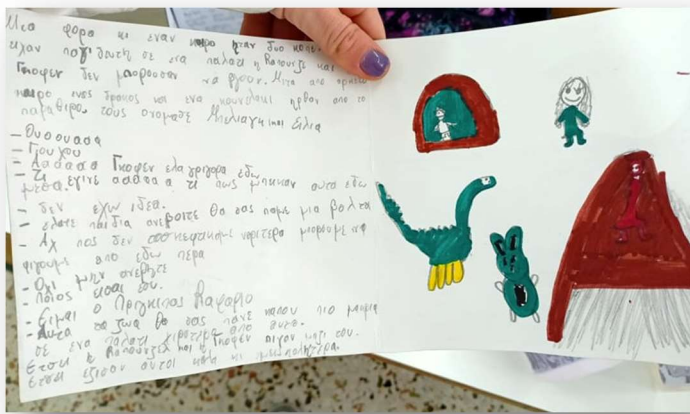 Μια φορά κι έναν καιρό ήταν δυο κοπέ
είχαν παγιδευτή σε ένα παλάτι η Ραπουτζέ και
Γκόφεν δεν μπορούσαν να βγουν. Μετά από αρκετό
καιρό ένας δράκος και ένα κουνελάκι ήρθαν από το
παράθηρο. τους ονόμασε και
- Ουουουααα
- Γιουχου
- Αααααα Γκοφεν ελα γρίγορα εδω
- Τι εγινε ααααα α τι πως μπηκαν αυτα εδω
μεσα.
- δεν εχω ιδεα.
- ελατε παιδια ανεβειτε θα σας παμε μια βολτα
- Αχ πος δεν το σκεφτικαμε νοριτερα μπορουμε να
φιγουμε απο εδω περα
- Οχι μην ανεβητε
- Ποιος εισαι εσυ.
- Ειμαι ο Πριγκιπας
- Αυτα τα ζωα θα σας πανε καπου πιο μακρια
σε ενα παλατι χιροτερο απο αυτο.
Ετσι η Ραπουτζελ και η Γκοφεν πιγαν μαζι του.
Ετσι εζισαν αυτοι καλα κι